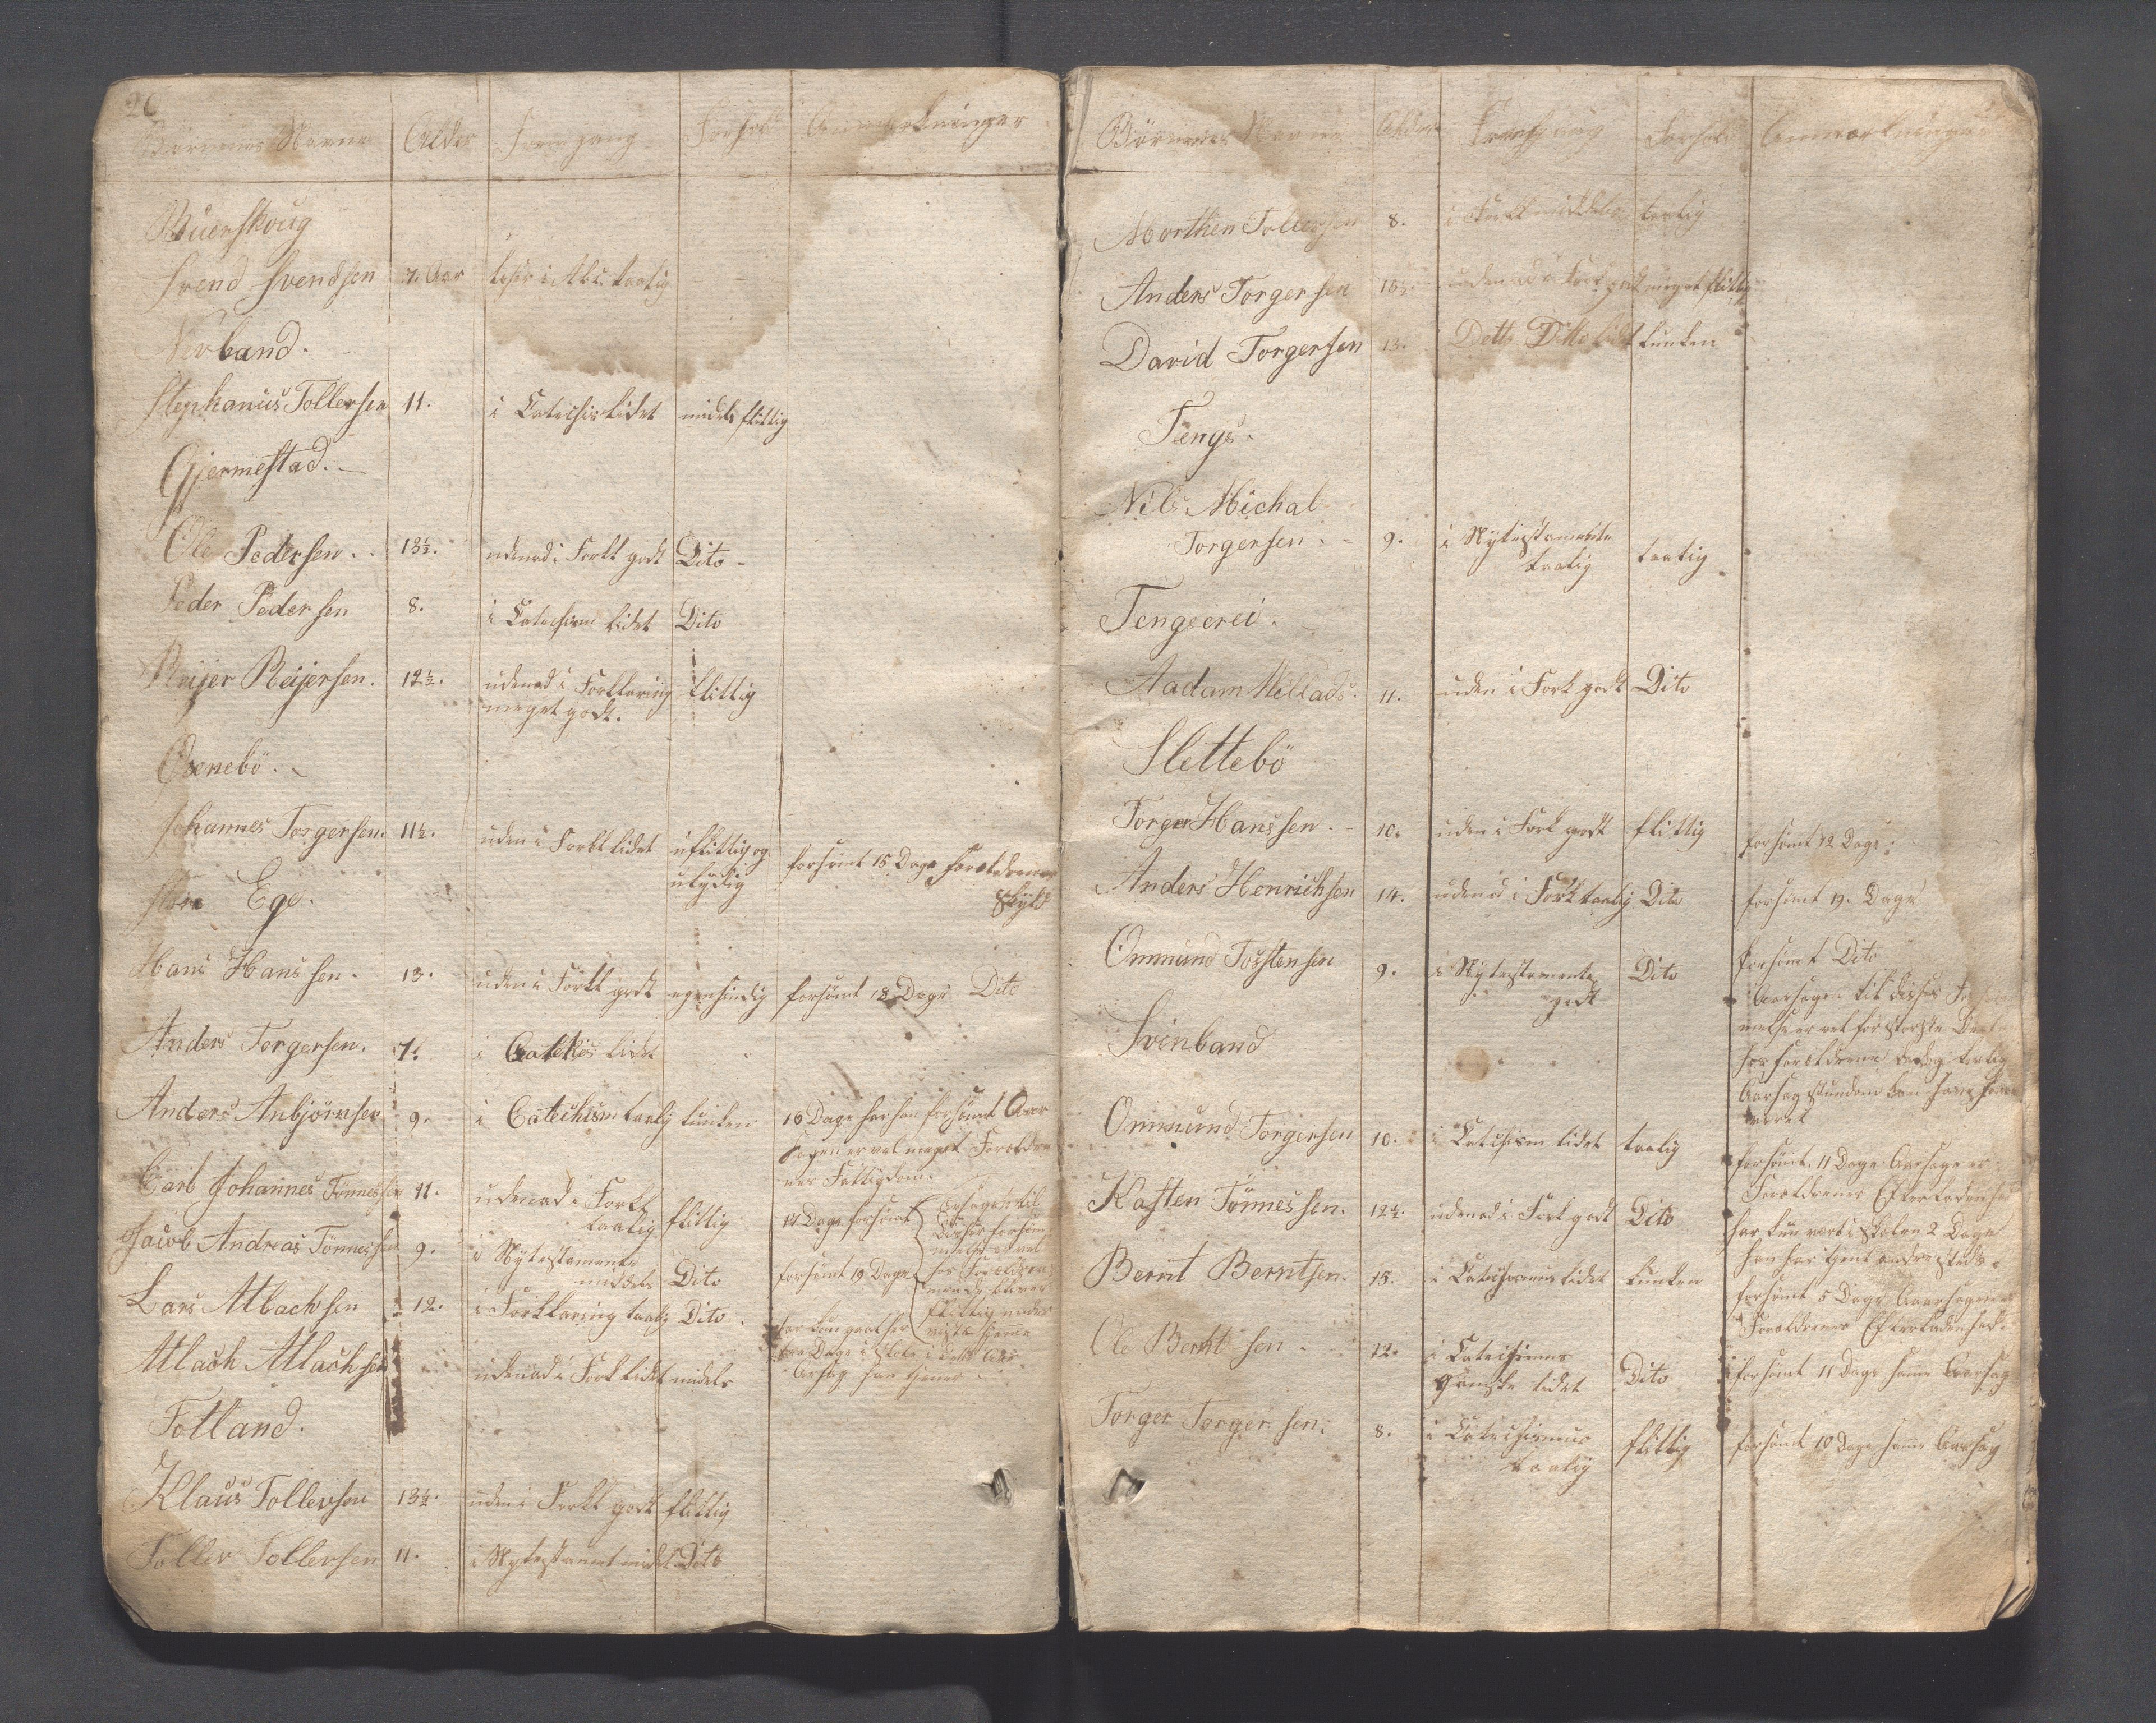 26
Börnenes Navne Alder Fremgang Forhold Anmærkninger
Buerskoug
Svend Svendsen 7. Aar læser i Abc taalig
Nevband.
Stephanus Tollevsen 11. i Catechis lidet midels flittig
Gjermestad.
Ole Pedersen. 13½. udenad i Forkl godt Dito
Peder Pedersen 8. i Catechism lidet Dito
Reijer Reijersen. 12½. udenad i Forklaring flittig
meget godt.
Øsenebö.
Johannes Torgersen. 11½. uden i Forkl lidet uflittig og forsömt 15 Dage Forældrenes
ulydig Skyld
Store Ege.
Hans Hanssen. 13. uden i Forkl godt egensindig forsömt 18 Dage Dito
Anders Torgersen. 7. i Catekis lidet
Anders Anbjörnsen 9. i Catechism taalig lunken 16 Dage har han forsömt Aar
sagen er vel meget Forældre
nes Fattigdom.
Carl Johannes Tönnessen 11. udenad i Forkl
taalig flittig 17 Dage forsömt
Jacob Andreas Tönnessen 9. i Nytestamente
midels Dito forsömt 19 Dage
Lars Atlachsen 12. i Forklaring taalig Dito
Atlach Atlachsen udenad i Forkl lidet midels
Aarsagen til
disses forsöm
melse er vel
hos Forældrene
Dage i Skole i dette Aar
Aarsag han tjener
Totland.
Klaus Tollevsen 13½. uden i Forkl godt flittig
Tollev Tollevsen 11. i Nytestament midel Dito
Börnenes Navne Alder Fremgang Forhold Anmærkninger
Morthen Tollevsen 8. i Forkl middels taalig
Anders Torgersen 15½. udenad i Forkl godt meget flittig
David Torgersen 13. Detto Ditto lidt lunken
Tengs.
Nils Michal
Torgersen. 9. i Nytestamente
taalig taalig
Tengserei.
Aadam Mellads. 11. uden i Fork godt Dito
Slettebö
Torger Hanssen. 10. uden i Fork godt flittig forsömt 12 Dage.
Anders Henrichsen 14. udenad i Fork taalig Dito forsömt 19. Dage
Ommund Tostensen 9. i Nytestamente Dito forsömt Dito
godt
Aarsagen til disses Forsöm
melse er vel for störste Deel
hos Forældrene dog taalig
Aarsag stundom kan have
været
Svinband
Ommund Torgersen 10. i Catechism lidet taalig forsömt 11 Dage Aarsage er
Forældrenes Efterladenhed
Kasten Tönnessen. 12½. udenad i Fork godt Dito har kun vært i Skolen 2 Dage
han har tjent andre steds.
Bernt Berntsen. 15. i Catechismus lidet lunken forsömt 5 Dage Aarsagen er
Forældrenes Efterladenhed.
Ole Berntsen. 12. i Catechismus
ganske lidet Dito forsömt 11 Dage samme Aarsag
Torger Torgersen. 8. i Catechismus
taalig flittig forsömt 10 Dage samme Aarsag